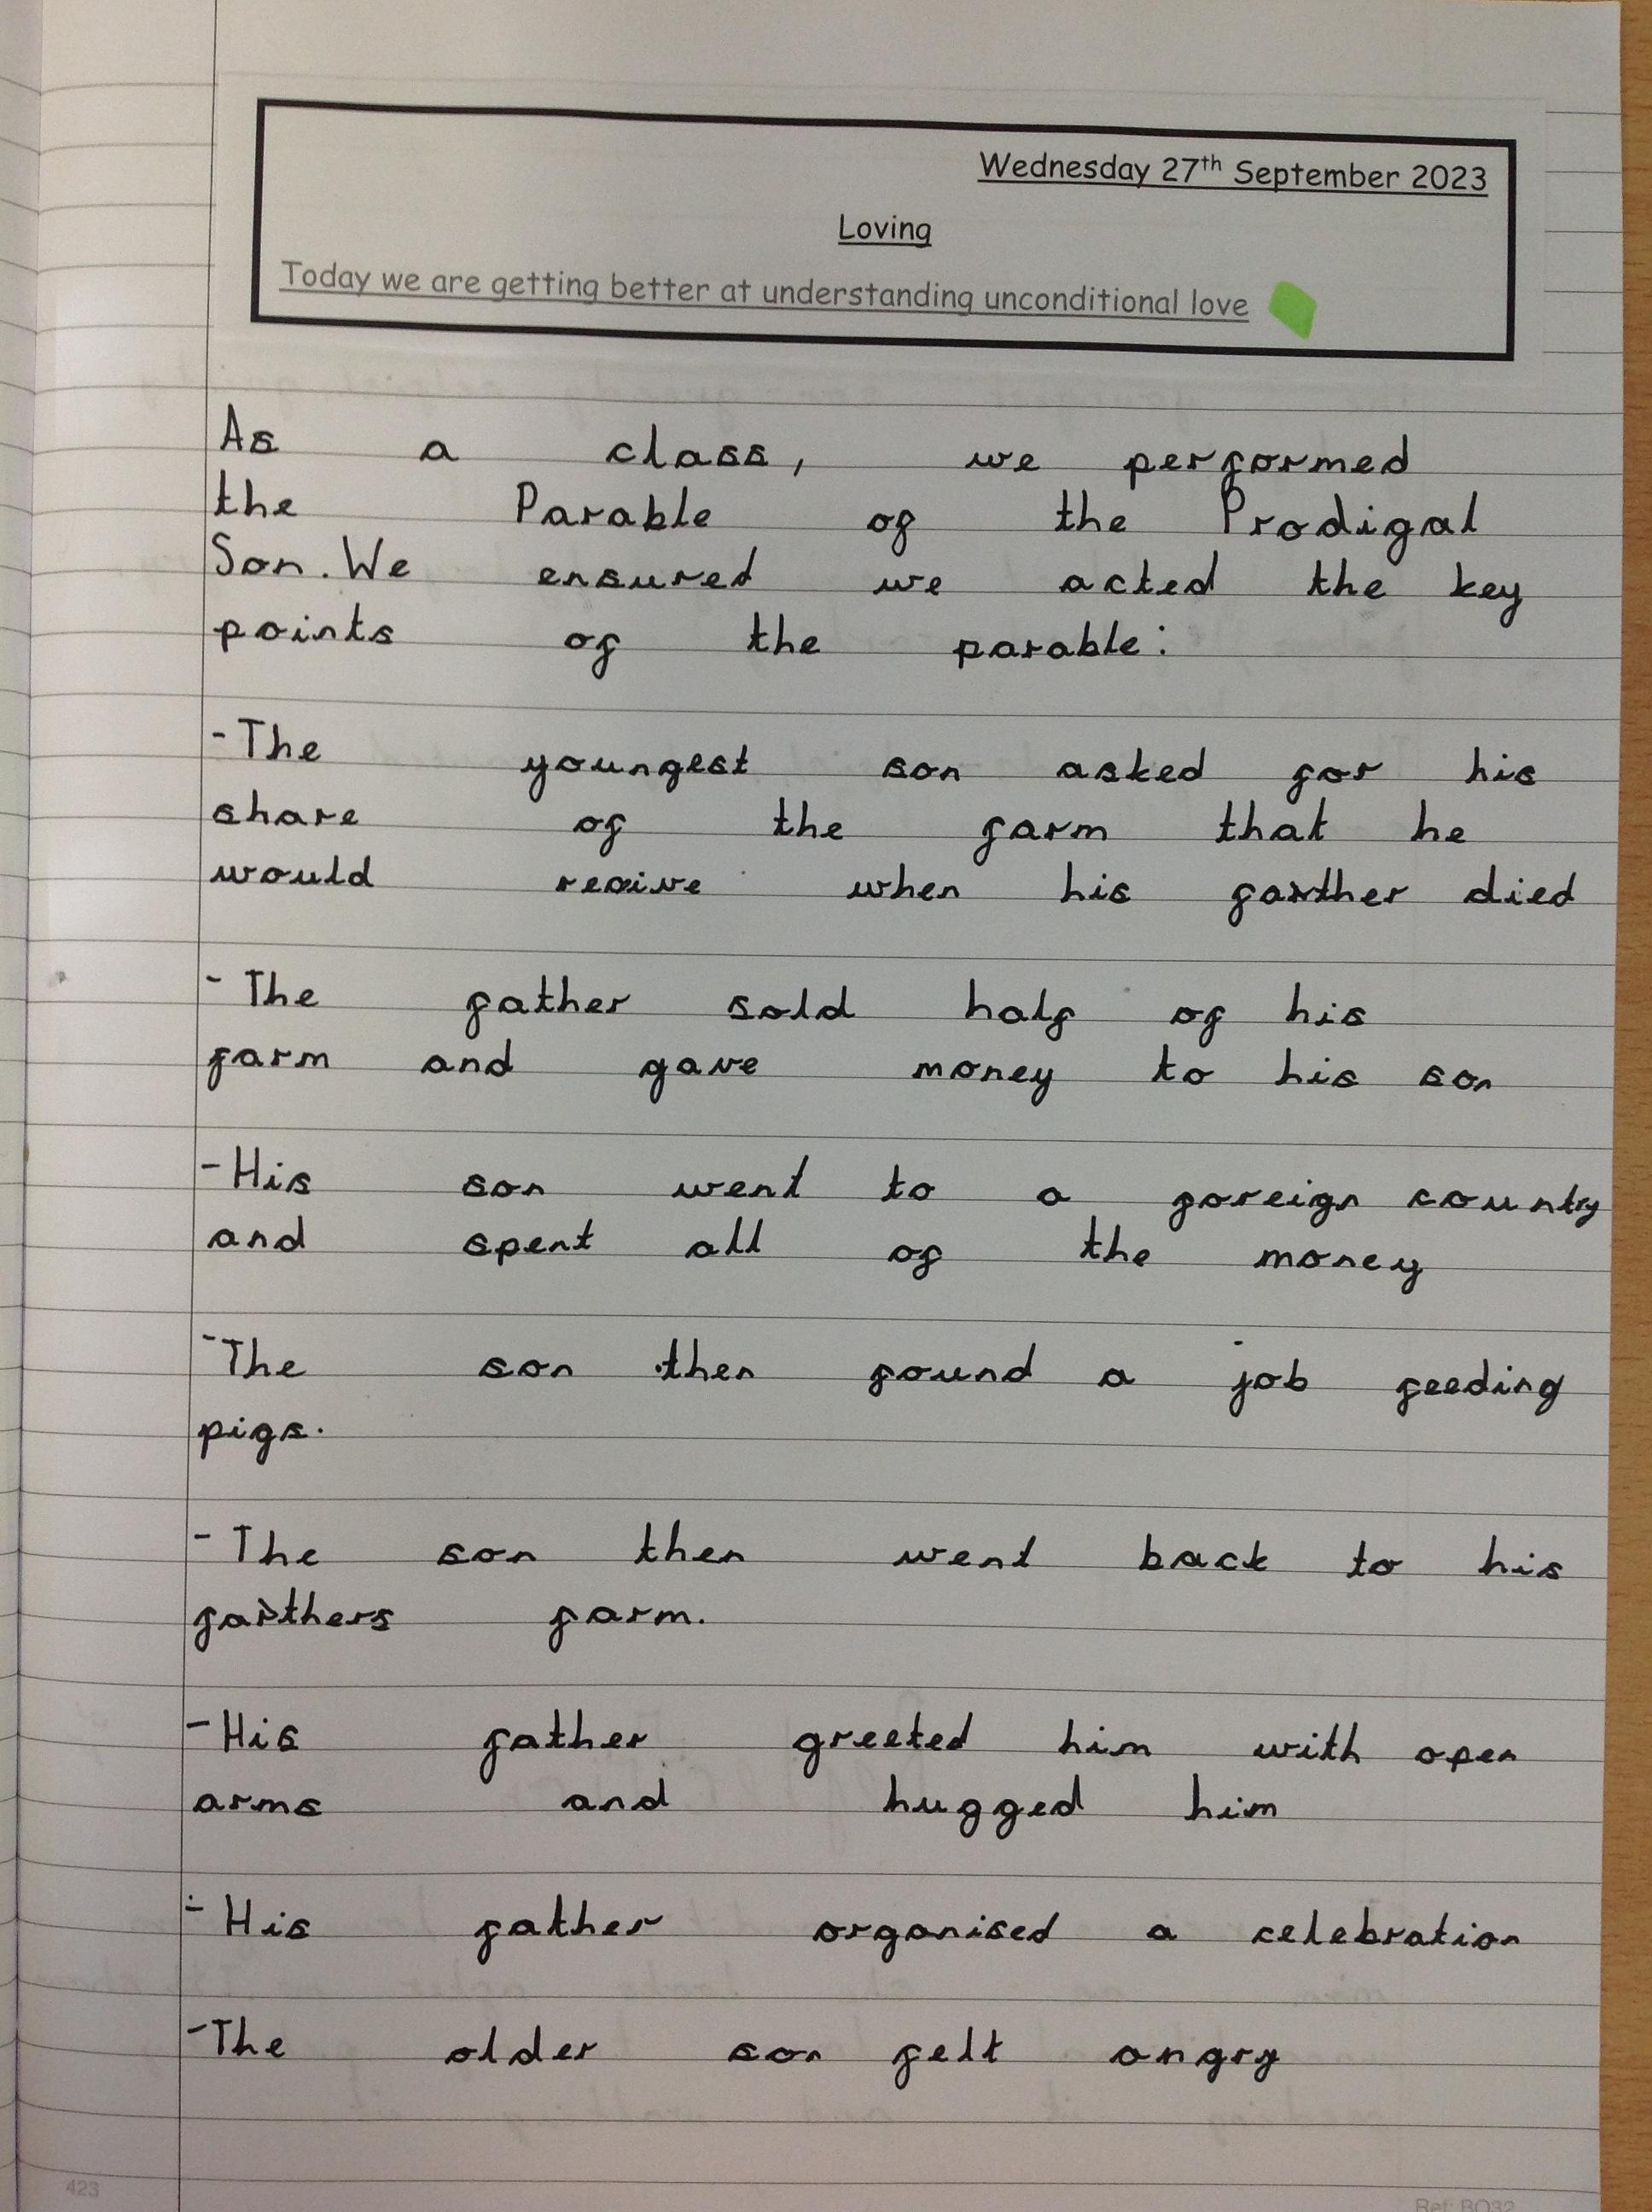 Wednesday 27th September 2023
Loving
Today we are getting better at understanding unconditional love
As a class, we performed
the Parable of the Prodigal
Son. We ensured we acted the key
points of the parable:
- The youngest son asked for his
share of the farm that he
would receive when his farther died
- The father sold half of his
farm and gave money to his son
- His son went to a foreign country
and spent all of the money
- The son then found a job feeding
pigs.
- The son then went back to his
farthers farm.
- His father greeted him with open
arms and hugged him
- His father organised a celebration
- The older son felt angry
423
Ref: BO32